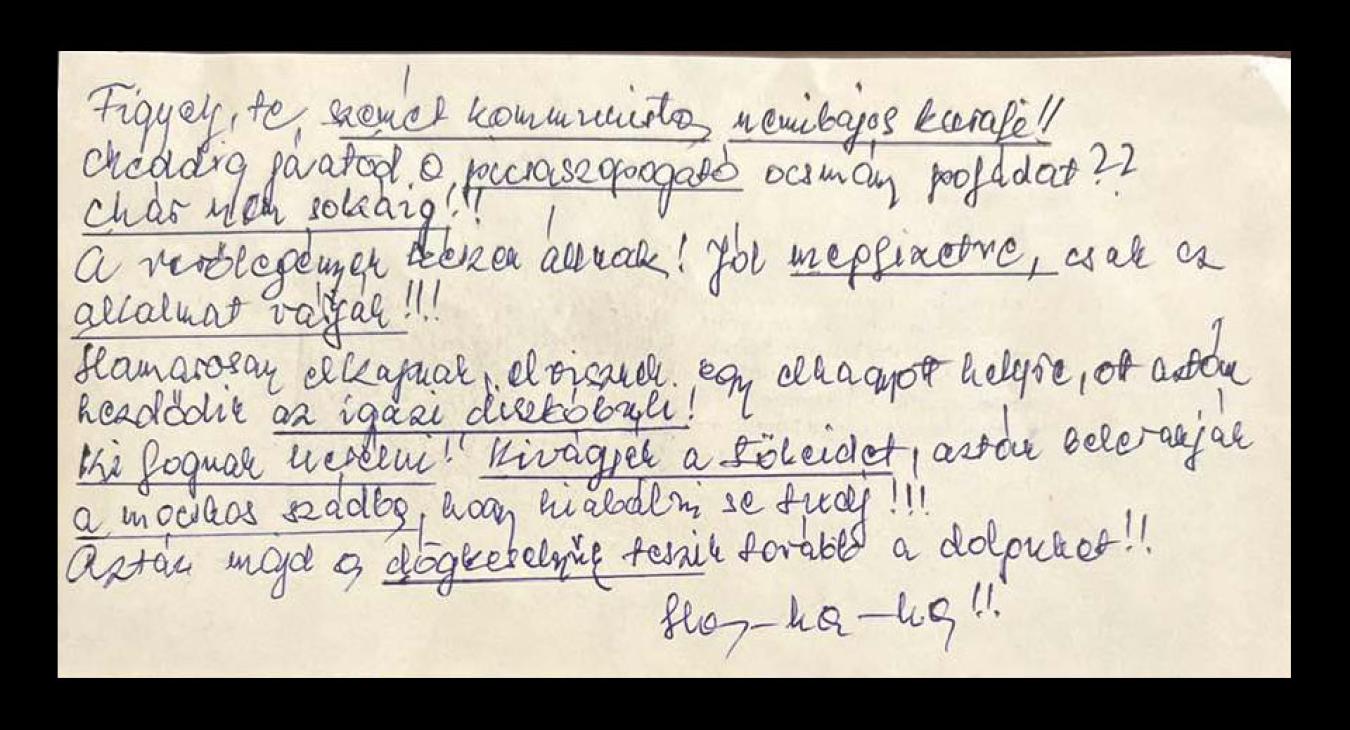 Figyelj, te, szemét kommunista nemibajos kurafi!!
Meddig járatod a pinaszopogató ocsmány pofádat??
Már nem sokáig!!
A verőlegények készen állnak! Jól megfizetve, csak az
alkalmat várják!!!
Hamarosan elkapnak, elvisznek egy elhagyott helyre, ot aztán
kezdődik az igazi diszkóbuli!
Ki fognak herélni! Kivágják a tökeidet, aztán belerakják
a mocskos szádba, hogy kiabálni se tudj!!!
Aztán majd a dögkeselyűk teszik tovább a dolgukat!!
Ha-ha-ha!!